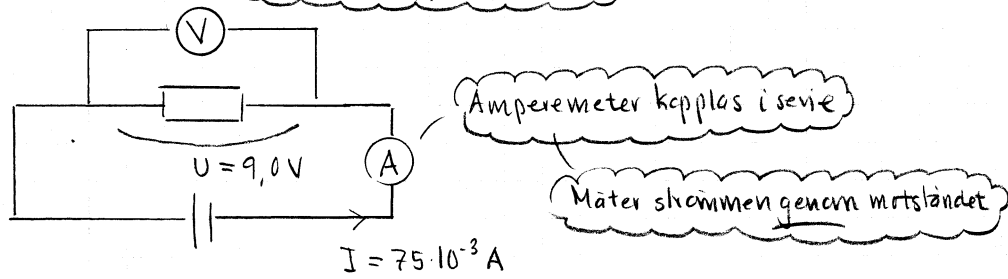 V
Amperemeter kopplas i serie
U = 9,0 V
A
Mäter strömmen genom motståndet
I = 75·10⁻³ A